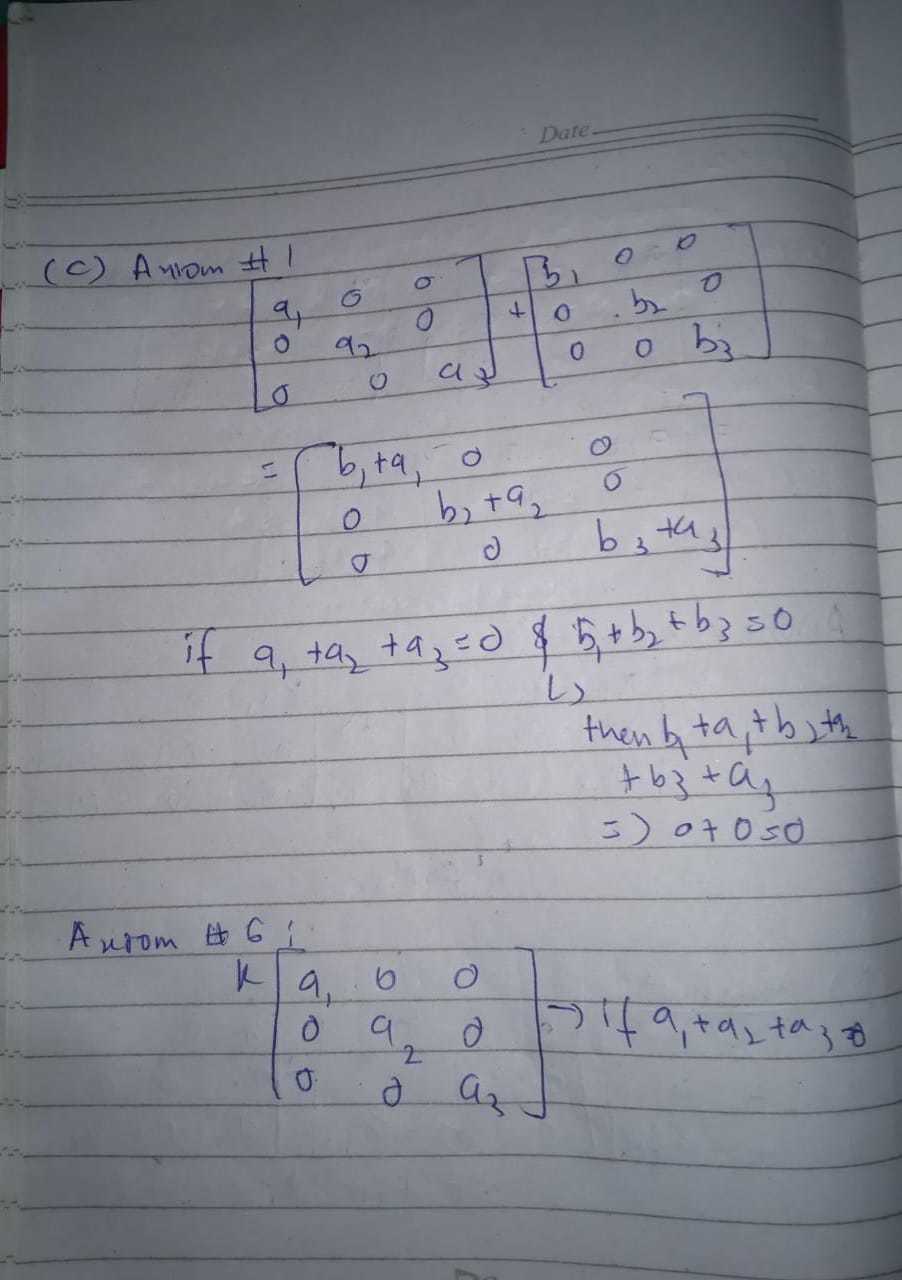 Date
(C) Axiom # 1
[a₁ 0 0] + [b₁ 0 0]
[0 a₂ 0] [0 b₂ 0]
[0 0 a₃] [0 0 b₃]
= [b₁+a₁ 0 0]
[0 b₂+a₂ 0]
[0 0 b₃+a₃]
if a₁+a₂+a₃=0 & b₁+b₂+b₃=0
↳
then b₁+a₁+b₂+a₂
+b₃+a₃
=) 0+0=0
Axiom # 6 :
k [a₁ 0 0]
[0 a₂ 0] → if a₁+a₂+a₃ 0
[0 0 a₃]